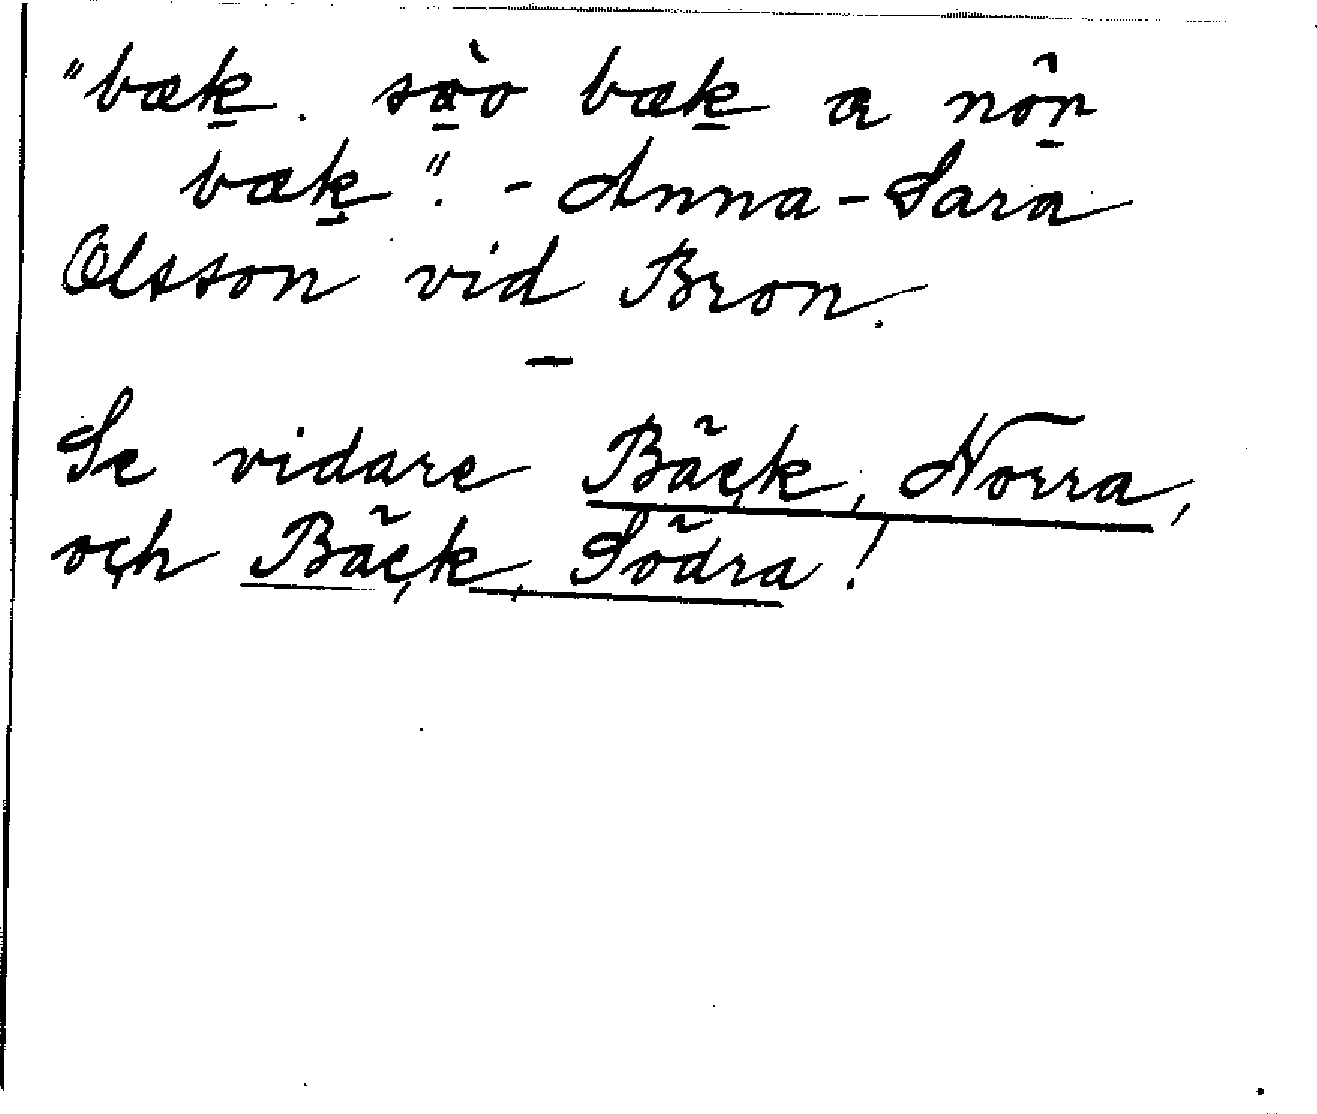 "bæk̲. sὰ̲o bæk̲ a nôn̲
bæk̲". - Anna-Sara
Olsson vid Bron.
—
Se vidare Bäck, Norra,
och Bäck, Södra!